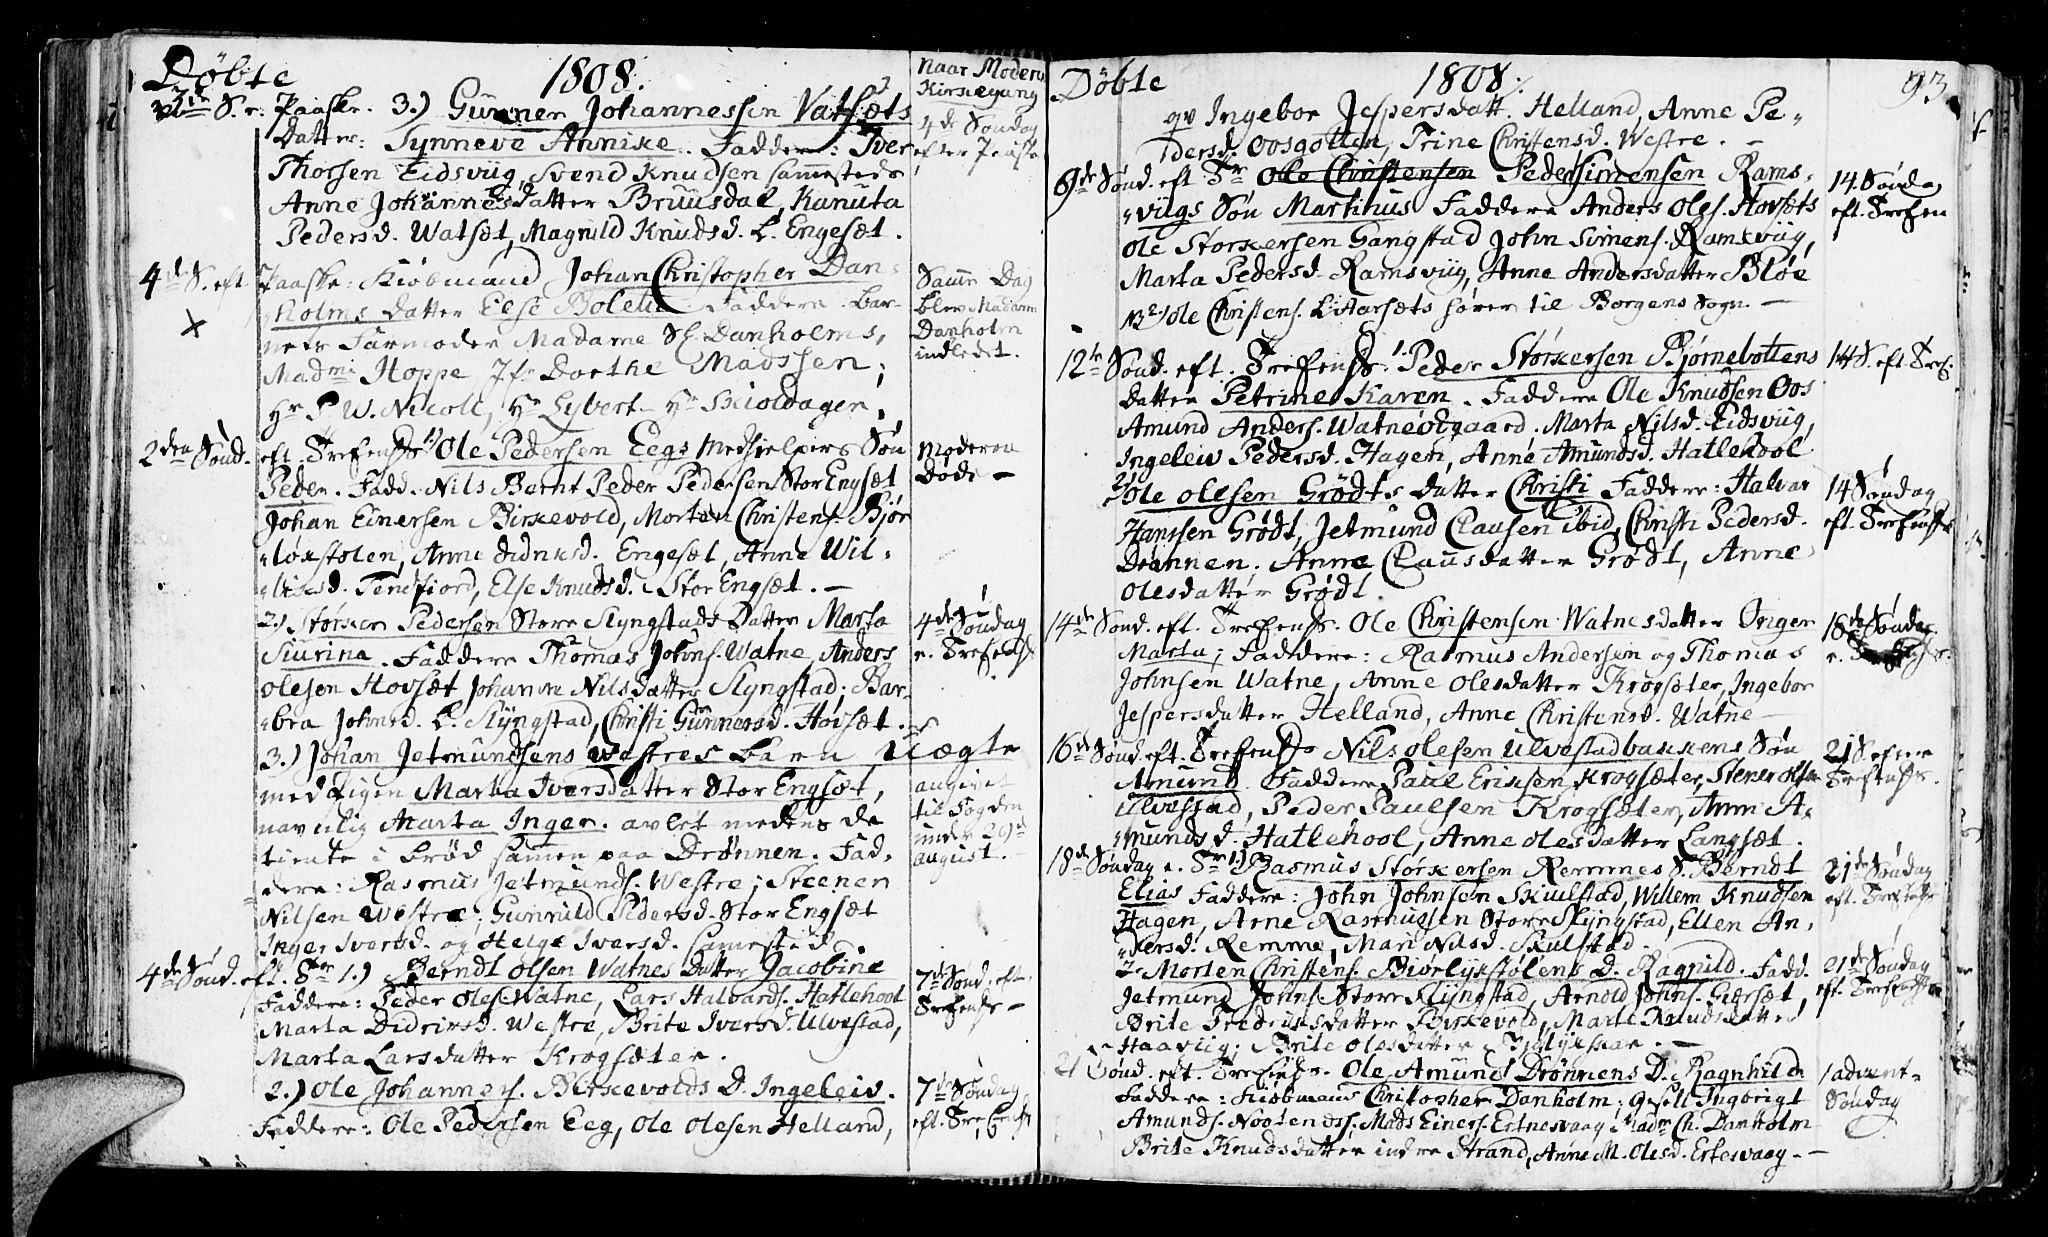 Döbte 1808.
Naar Moderns
Kirkegang
S. e. Paaske. 3.) Gunner Johannessen Vatsæts
Datter: Synneve Annike. Faddere: Iver
Thorsen Eidsviig, Svend Knudsen sammesteds
Anne Johannesdatter Bruusdal, Kanuta
Pedersd. Watsæt, Magnild Knudsd. L. Engesæt.
4de Søndag
efter Paaske
4de S. eft. Paaske: Kiøbmand Johan Christopher Dan-
holms datter Else Bolette Faddere. Bar-
nets Farmoder Madame Sl. Danholms,
Madme Hoppe, Jfr Dorthe Madssen;
Hr P. W. Nicoll, Hr Lybert Hr Skioldager.
Samme Dag
blev Madame
Danholm
indledet.
2den Sønd. eft. Trefensst 1) Ole Pedersen Eegs Medhielpers Søn
Peder. Fadd. Nils Bernt Peder Pedersen Stor Engsæt
Johan Einersen Birkevold, Morten Christens. Bjør
løkstolen, Anne Didriksd. Engesæt, Anne Wil-
Tenfiord, Else Knudsd. Stor Engsæt. —
Moderen
Døde —
2.) Størker Pedersen Store Slyngstads Datter Marta
Siurina. Faddere Thomas Johns. Watne, Anders
Olesen Hovsæt Johanne Nilsdatter Slyngstad; Bar-
bra Johnsd. L. Slyngstad, Christi Gunnersd. Hovsæt.
4de Søndag
e. Trefensst
3.) Johan Jetmundsens Westres barn Uægte
med Pigen Marta Iversdatter Stor Engsæt,
navnlig Marta Inger. avlet medens de
tiente i brød sammen paa Drønnen. Fad-
dere: Rasmus Jetmunds. Westre; Steener
Nilsen Westre; Gunnild Pedersd. Stor Engsæt
Inger Iversd. og Helge Iversd. samested.
angivet
til Fogden
under 29de
august. —
4de Sønd. eft. Str 1.) Berndt Olsen Watnes Datter Jacobine
Faddere: Peder Olesen Watne, Lars Halvards. Hatlehool
Marta Didriksd. Westre, Brite Iversd. Ulvestad,
Marta Larsdatter Krogsæter.
7de Sønd. eft.
Trefensst —
2.) Ole Johanness. Birkevolds D. Ingeleiv.
Faddere: Ole Pedersen Eeg, Ole Olesen Helland,
7de Søndag
eft. Trefensst
Döbte 1808. 93
Ingebor Jespersdatt. Helland, Anne Pe-
dersd. Oosgotten, Trine Christensd. Westre. —
9de Sønd. eft Tr Ole Christensen Peder Simensen Rams-
viigs Søn Martinus Faddere Anders Oles. Hovsæts
Ole Størkersen Gangstad John Simens. Ramsviig,
Marta Pedersd. Ramsviig, Anne Andersdatter Bløe
NB Ole Christens. L Aarsæts hører til Borgens Sogn. —
14. Søndag
eft. Trefen
12te Sønd. eft. Trefensst. 1. Peder Størkersen Bjørnebottens
Datter Petrine Karen. Faddere Ole Knudsen Oos
Amund Anders. Watneøtgaard. Marta Nilsd. Eidsviig,
Ingeleiv Pedersd. Hagen, Anne Amundsd. Hatlehool
14 S. eft Tref.
2) Ole Olesen Grödts datter Christi Faddere: Halvar
Hanssen Grødt, Jetmund Clausen ibid, Christi Pedersd.
Drönnen. Anne Clausdatter Grødt, Anne
Olesdatter Grødt.
14 Søndag
eft. Trefensst
14de Sønd. eft. Trefensst. Ole Christensen Watnes datter Inger
Marta; Faddere: Rasmus Andersen og Thomas
Johnsen Watne, Anne Olesdatter Krogsæter, Ingebor
Jespersdatter Helland, Anne Christensd. Watne
18de Søndag
e.
16de Sønd eft. Trefensst Nils Olesen Ulvestadbakkens Søn
Amund. Faddere Paul Eriksen Krogsæter, Stener Olsen
Ulvestad, Peder Paulsen Krogsæter, Anne A-
mundsd. Hatlehool, Anne Olesdatter Langsæt.
21 S. efter
Trefensst.
18de Søndag e. Tr 1) Rasmus Størkersen Remmes S. Berndt
Elias Faddere: John Johnsen Skuulstad, Willem Knudsen
Hagen, Arne Rasmussen Store Slyngstad, Ellen An-
dersd. Remme, Mari Nilsd. Skulstad.
21de Søndag
eft.
2. Morten Christens. Biørløkstølens D. Ragnild. Fadd.
Jetmund Johns. Store Slyngstad, Arnold Johns. Gidrsæt,
Brite Fredriksdatter Birkevold, Marte Knudsdatter
Haaviig; Brite Olesdatter
21de Søndag
eft. Trefensst
21 Sønd. eft. Trefensst. Ole Amunds Drønnens D. Ragnhild
Faddere: Kiøbmand Christopher Danholm; Ingbrigt
Amunds. Mads Einers. Ertnesvaag Madm Ch. Danholm
Brite Knudsdatter indre Strand, Anne M. Olesd. Ertesvaag. —
1 advent-
Søndag